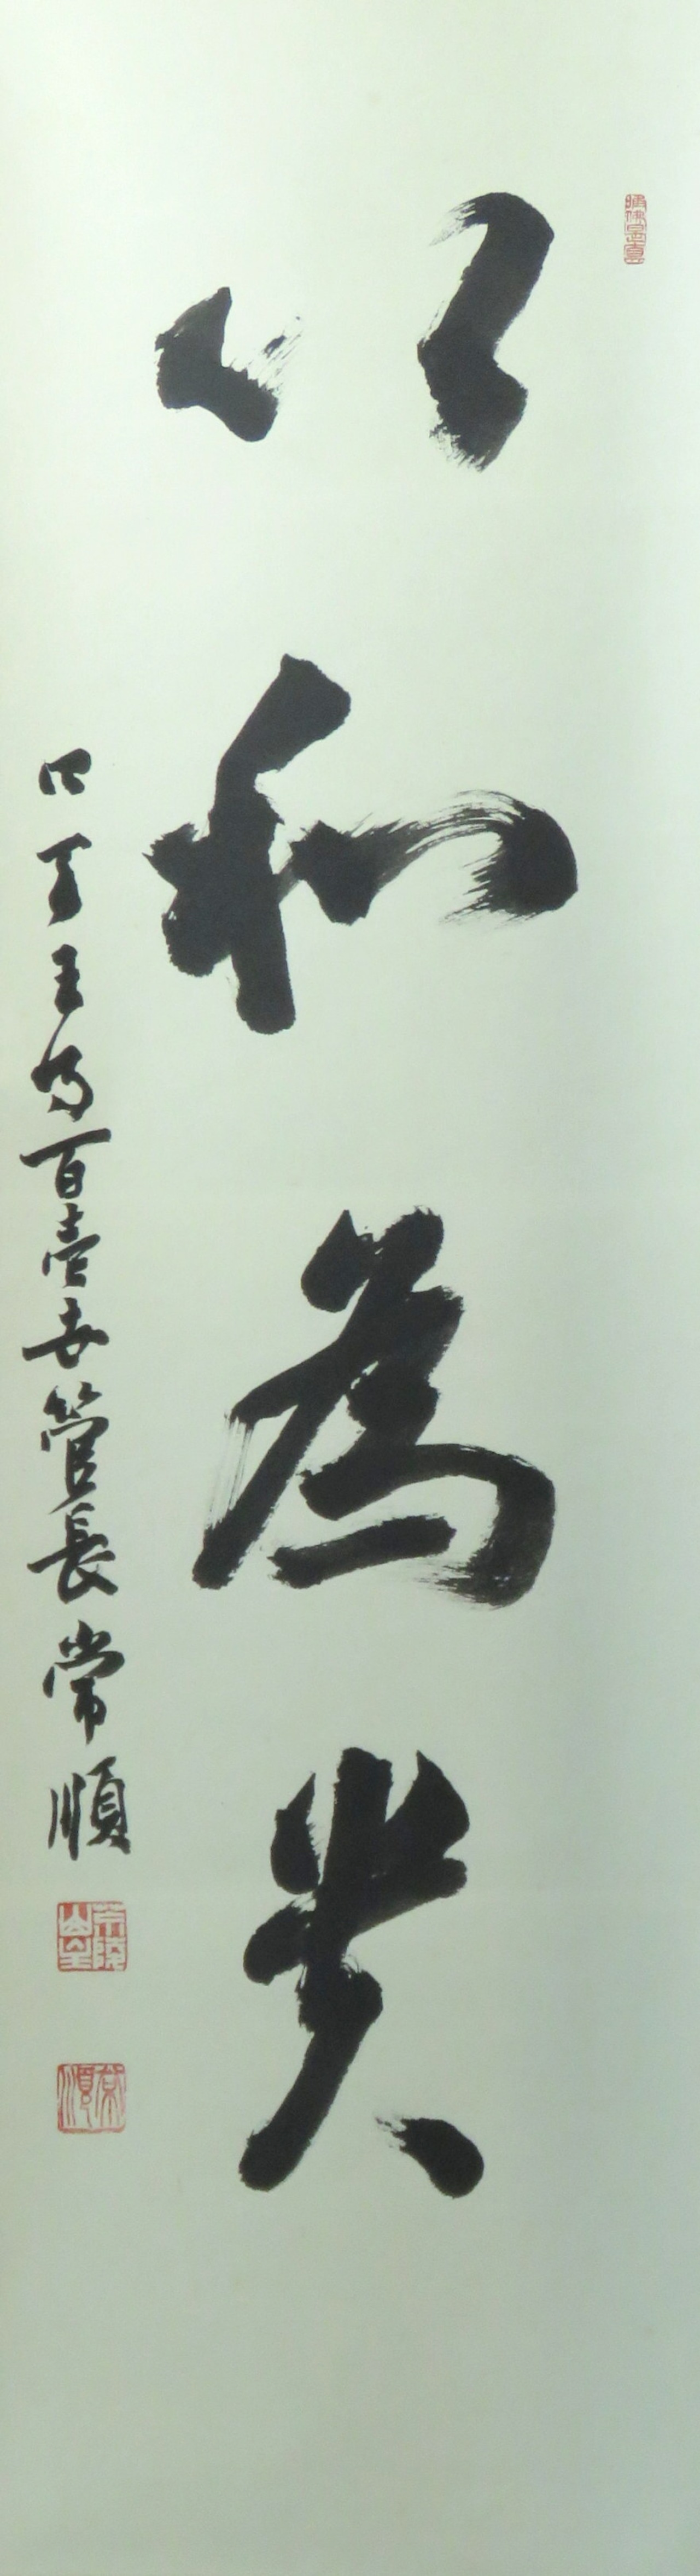 以和為貴
四天王寺百壹世管長常順
常順